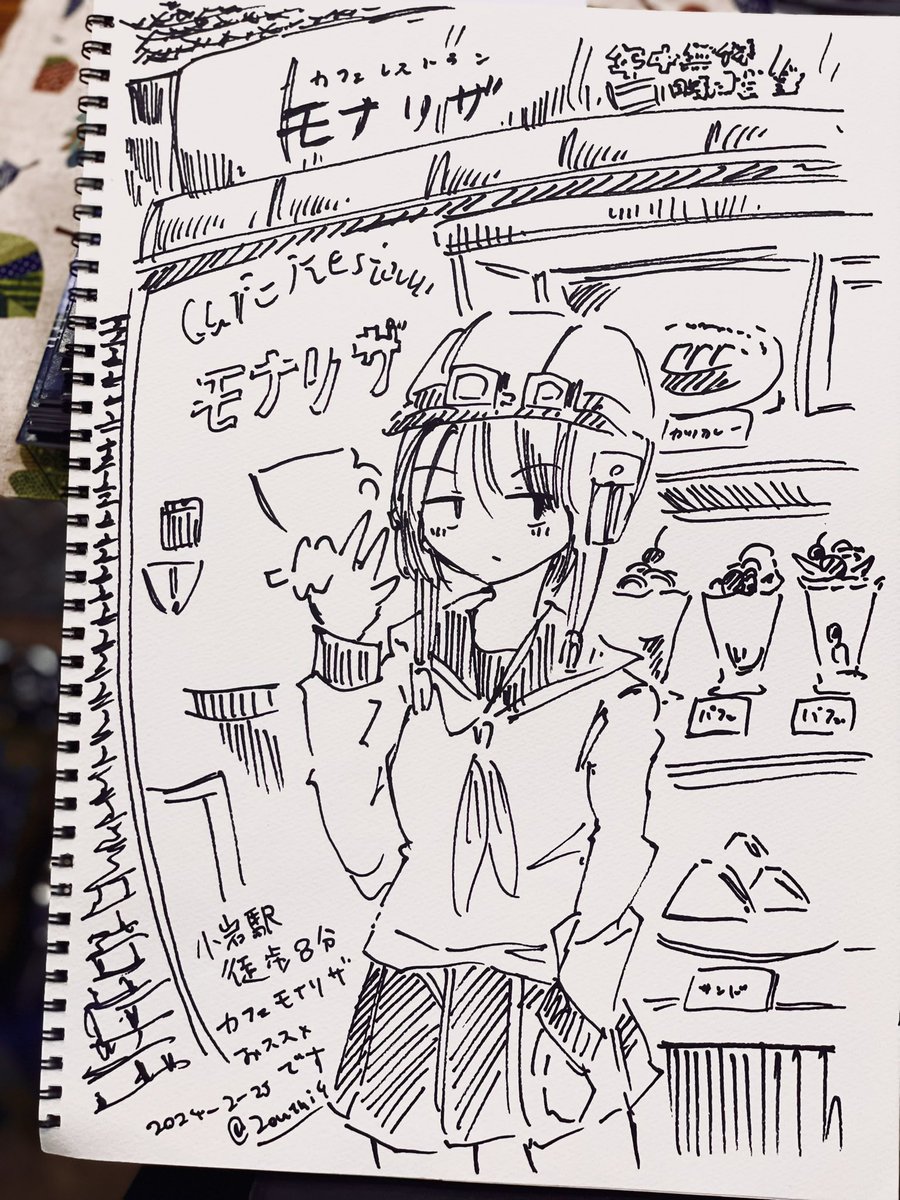 カフェレストラン
モナリザ
モナリザ
カツカレー
パフェ
パフェ
サンド
小岩駅
徒歩8分
カフェモナリザ
おススメ
です
2024-2-25